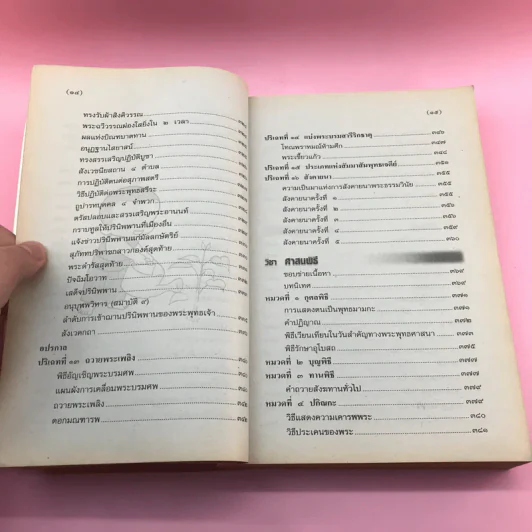 (๑๔)
ทรงรับผ้าสิงคิวรรณ
พระฉวีวรรณผ่องใสยิ่งใน ๒ เวลา
ผลแห่งบิณฑบาตทาน
อนุฏฐานไสยาสน์
ทรงสรรเสริญปฏิบัติบูชา
สังเวชนียสถาน ๔ ตำบล
การปฏิบัติตนต่อสุภาพสตรี
วิธีปฏิบัติต่อพระพุทธสรีระ
ถูปารหบุคคล ๔ จำพวก
ตรัสปลอบและสรรเสริญพระอานนท์
กราบทูลให้ปรินิพพานที่เมืองอื่น
แจ้งข่าวปรินิพพานแก่มัลลกษัตริย์
สุภัททปริพาชกสาวกองค์สุดท้าย
พระดำรัสสุดท้าย
ปัจฉิมโอวาท
เสด็จปรินิพพาน
อนุบุพพวิหาร (สมาบัติ ๙)
ลำดับการเข้าฌานปรินิพพานของพระพุทธเจ้า
สังเวคกถา
อปรกาล
ปริเฉทที่ ๑๓ ถวายพระเพลิง
พิธีอัญเชิญพระบรมศพ
แผนผังการเคลื่อนพระบรมศพ
ถวายพระเพลิง
ดอกมณฑารพ
(๑๕)
ปริเฉทที่ ๑๔ แบ่งพระบรมสารีริกธาตุ ๓๔๖
โทณพราหมณ์ห้ามศึก ๓๔๗
พระเขี้ยวแก้ว
ปริเฉทที่ ๑๕ ประเภทแห่งสัมมาสัมพุทธเจดีย์ ๓๕๑
ปริเฉทที่ ๑๖ สังคายนา ๓๕๕
ความเป็นมาแห่งการสังคายนาพระธรรมวินัย ๓๕๕
สังคายนาครั้งที่ ๑
สังคายนาครั้งที่ ๒
สังคายนาครั้งที่ ๓
สังคายนาครั้งที่ ๔
สังคายนาครั้งที่ ๕ ๓๖๐
วิชา ศาสนพิธี
ขอบข่ายเนื้อหา ๓๖๙
บทนิเทศ ๓๖๙
หมวดที่ ๑ กุศลพิธี ๓๗๑
การแสดงตนเป็นพุทธมามกะ ๓๗๑
คำปฏิญาณ ๓๗๒
พิธีเวียนเทียนในวันสำคัญทางพระพุทธศาสนา ๓๗๓
พิธีรักษาอุโบสถ ๓๗๕
หมวดที่ ๒ บุญพิธี ๓๗๗
หมวดที่ ๓ ทานพิธี ๓๗๗
คำถวายสังฆทานทั่วไป ๓๗๙
หมวดที่ ๔ ปกิณกะ ๓๗๙
วิธีแสดงความเคารพพระ ๓๘๐
วิธีประเคนของพระ ๓๘๑